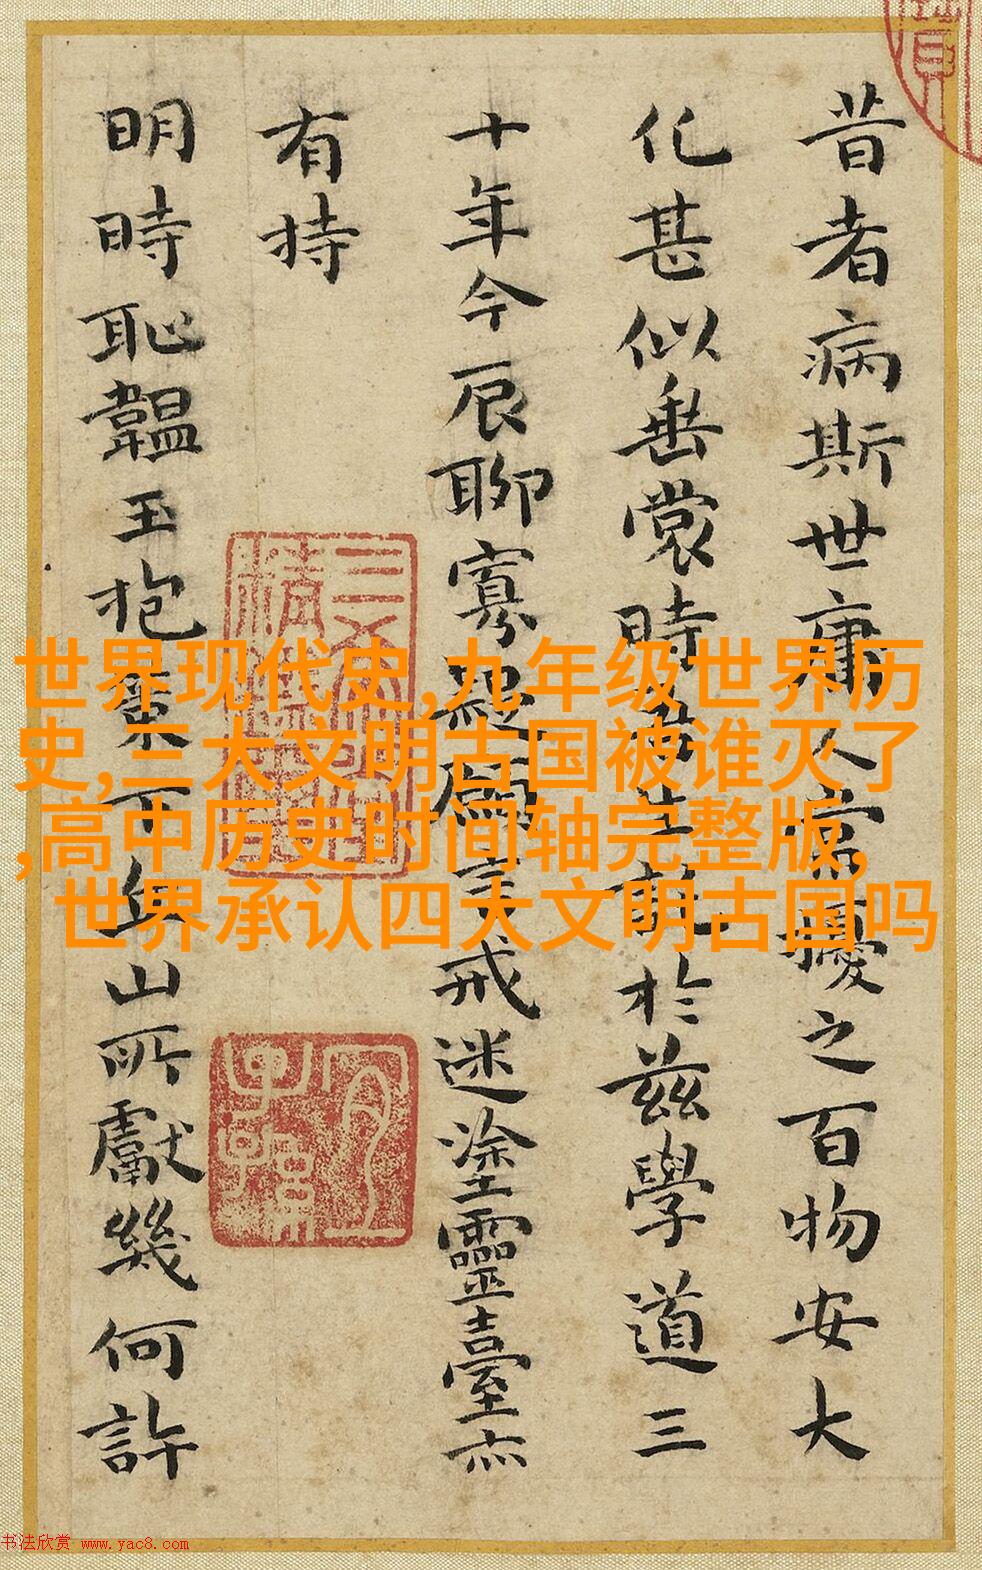 昔者病斯世庸人常擾之百物安大
化甚似垂裳時生託於茲學道三
十年今辰聊寡疑願言戒迷塗靈臺亦
有持
明時恥韞玉抱下丘山所獻幾何許
世界现代史,九年级世界历
史,三大文明古国被谁灭了
,高中历史时间轴完整版,
世界承认四大文明古国吗
书法欣赏 www.yac8.com